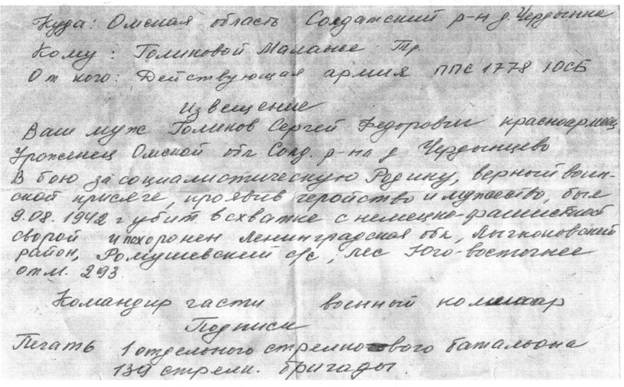 Куда: Омская область Солдатский р-н д Чердынце
Кому: Голиковой Маланье Тр
От кого: Действующая армия ППС 1778 1ОСБ
Извещение
Ваш муж Голиков Сергей Федорович красноармеец
Уроженец Омской обл Солд. р-на д Чердынцево
В бою за социалистическую Родину, верный воин-
ской присяге, проявив геройство и мужество, был
9.08.1942 г убит в схватке с немецко-фашистской
сворой и похоронен Ленинградская обл, Лычковский
район, Ромушевский с/с, лес Юго-восточнее
отм. 293
Командир части военный комиссар
Подписи
Печать 1 отдельного стрелкового батальона
134 стрелк. бригады.